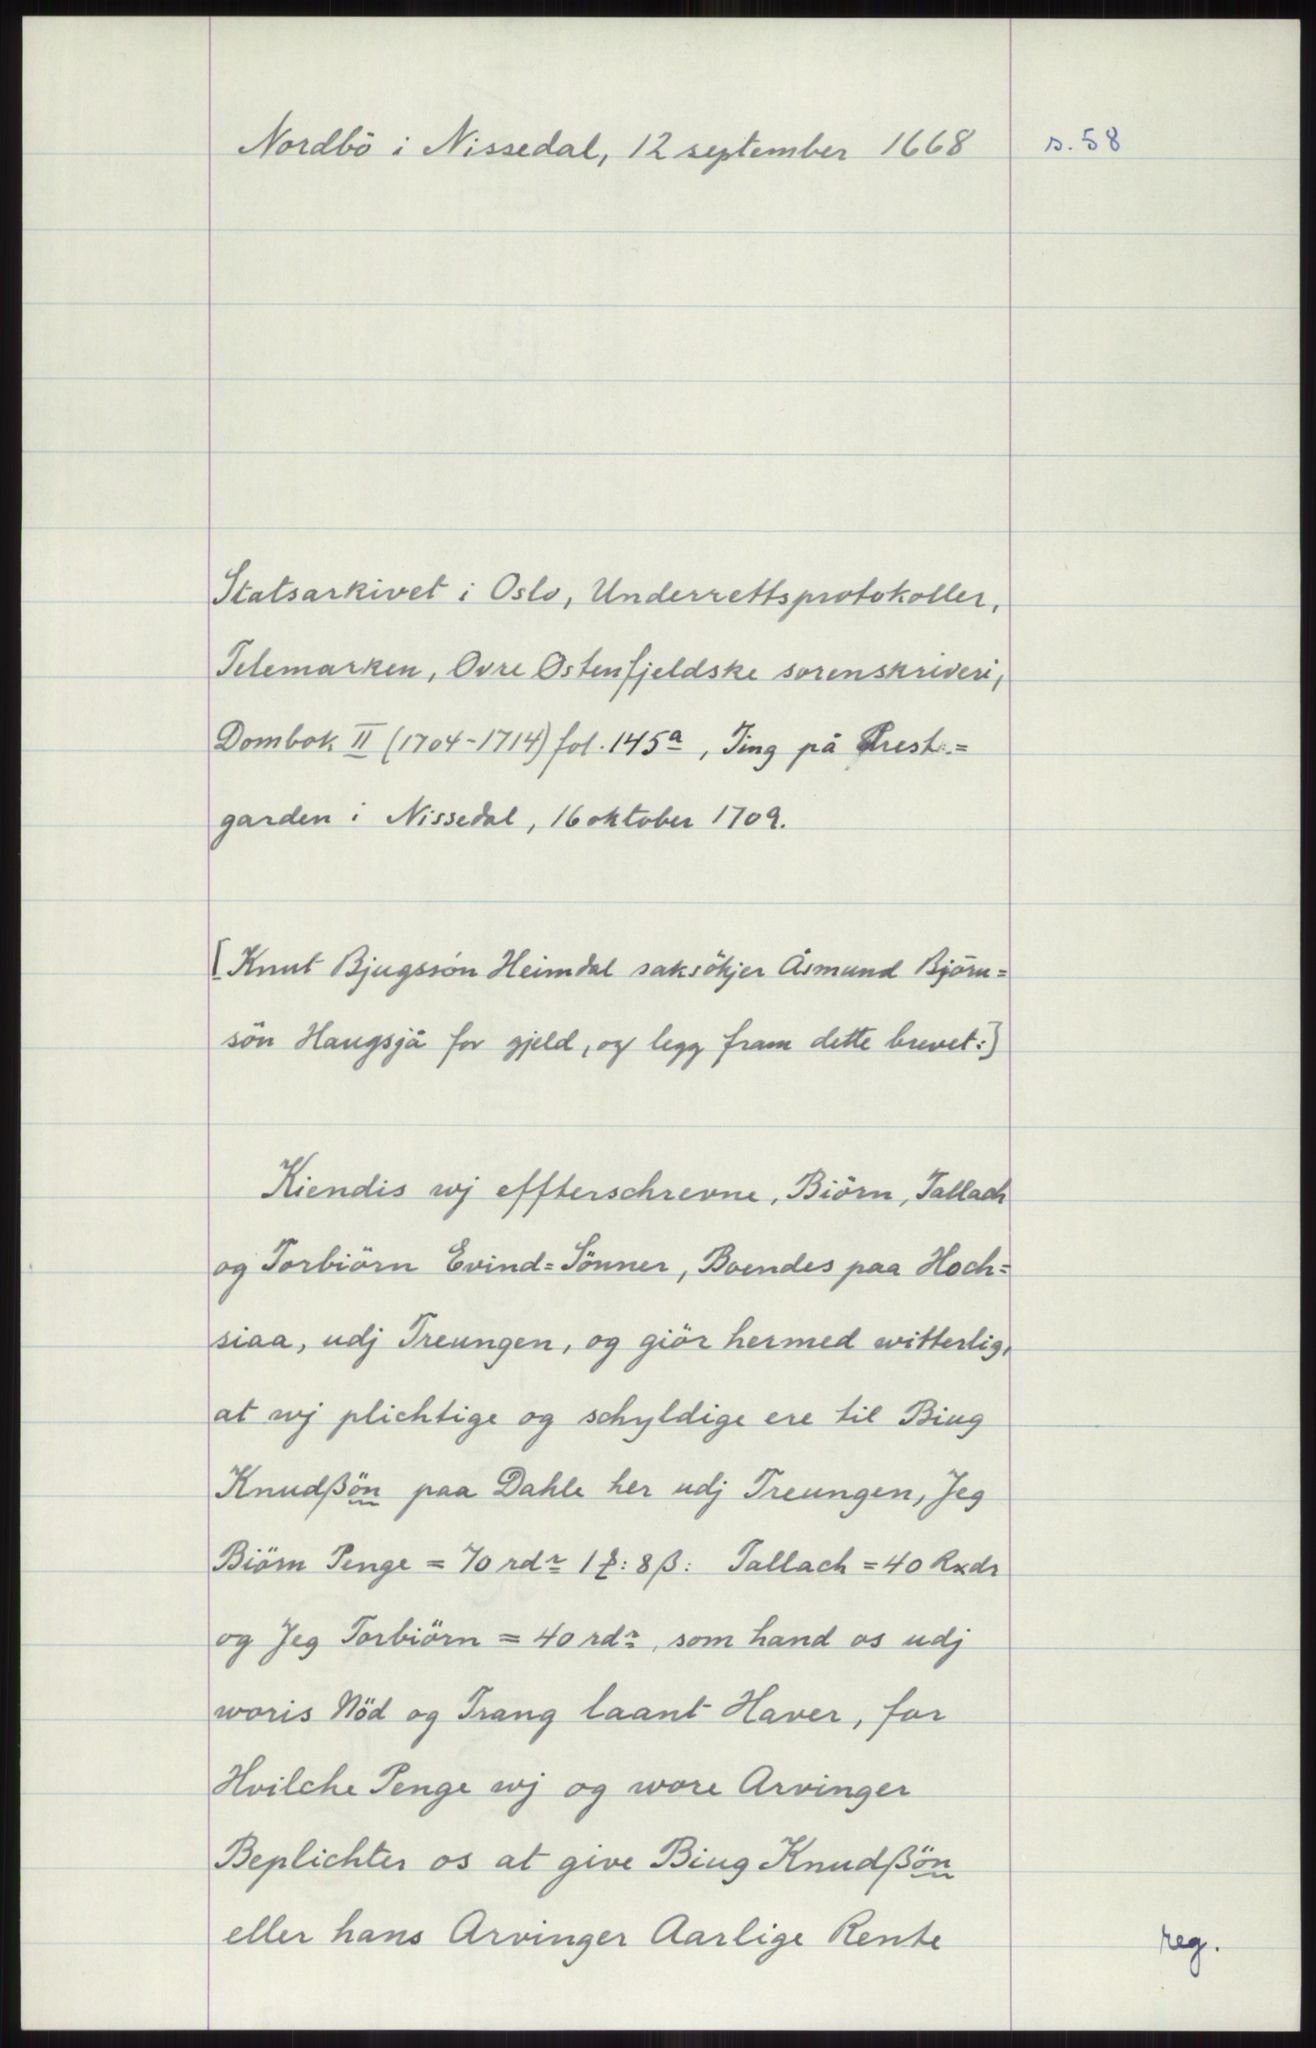 Nordbö i Nissedal, 12 september 1668
s. 58
Statsarkivet i Oslo, Underrettsprotokoller,
Telemarken, Ovre Ostenfjeldske sorenskriveri,
Dombok II (1704-1714) fol. 145a, Ting på Prest=
garden i Nissedal, 16 oktober 1709.
[Knut Bjugssön Heimdal saksökjer Åsmund Björn=
sön Haugsjå for gjeld, og legg fram dette brevet:]
Kiendis wj effterschrevne, Biörn, Tallach
og Torbiörn Evind=Sönner, Boendes paa Hoch=
siaa, udj Treungen, og giör hermed witterlig,
at wj plichtige og schyldige ere til Biug
Knudßön paa Dahle her udj Treungen, Jeg
Biörn Penge = 70 rdr 1 ƒ: 8 ß: Tallach = 40 Rxdr
og Jeg Torbiörn = 40 rdr, som hand os udj
woris Nöd og Trang laant Haver, for
Hvilche Penge wj og wore Arvinger
Beplichter os at give Biug Knudßön
eller hans Arvinger Aarlige Rente
reg.